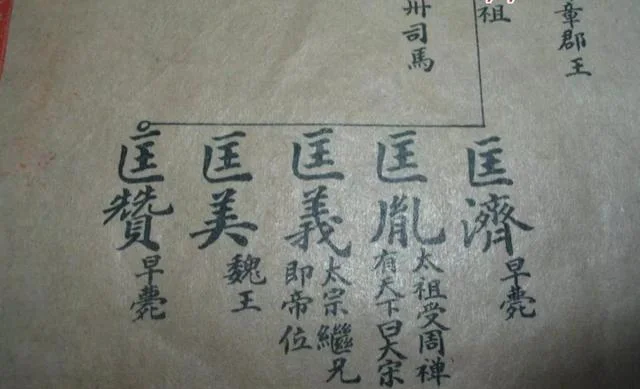 章郡王
祖
州司馬
匡濟
早薨
匡胤
太祖受周禪
有天下曰大宋
匡義
太宗繼兄
即帝位
匡美
魏王
匡贊
早薨